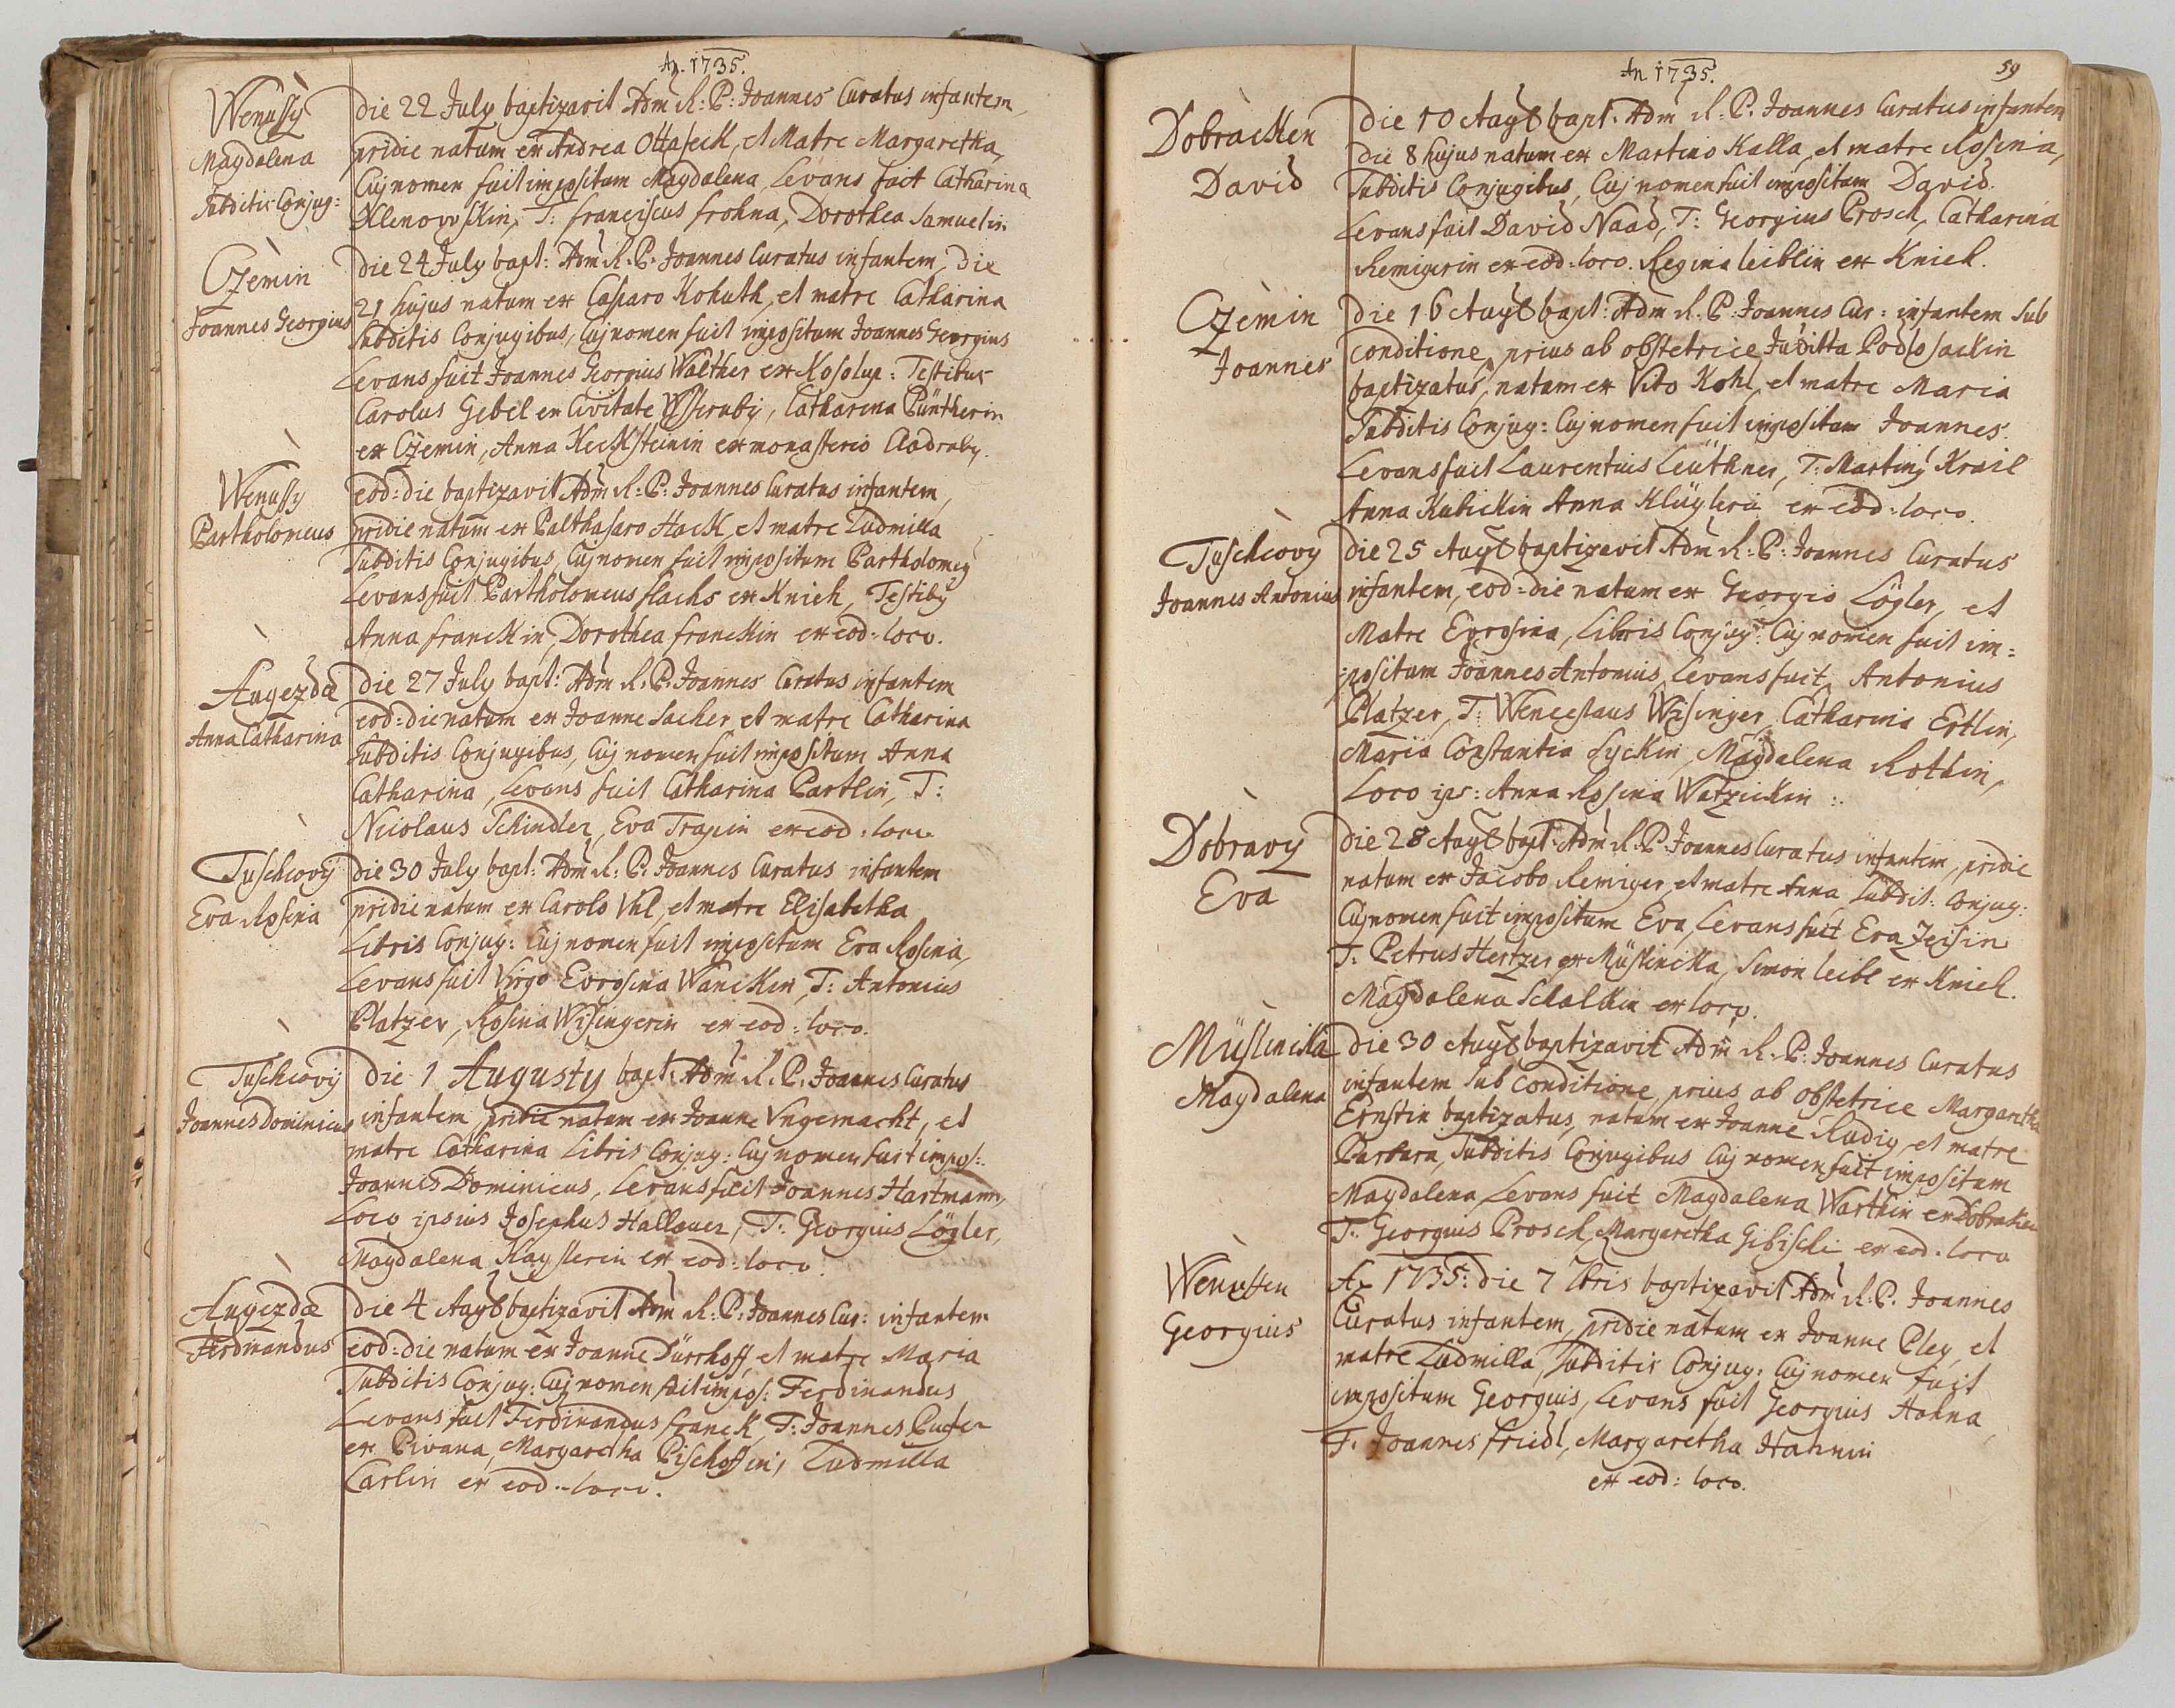 An. 1735.
Wenussy
Magdalena
Subditis Conjug:
Die 22 July baptizavit Adm R: P: Joannes Curatus infantem,
pridie natum ex Andrea Ottaseck, et Matre Margaretha,
Cuj nomen fuit impositum Magdalena, Levans fuit Catharina
Klenowskin, T: Franciscus Frohna, Dorothea Samuelin.
Czemin
Joannes Georgius
Die 24 July bapt: Adm R. P. Joannes Curatus infantem, die
21 hujus natum ex Casparo Kohuth, et matre Catharina
Subditis Conjugibus, Cuj nomen fuit impositum Joannes Georgius
Levans fuit Joannes Georgius Walther ex Kosolup: Testibus
Carolus Gebel ex Civitate Wscruby, Catharina Püntherin
ex Czemin, Anna Heckhsteinin ex monasterio Cladraby.
Wenussy
Partholomeus
eod: die baptizavit Adm R: P: Joannes Curatus infantem,
pridie natum ex Palthasaro Hack, et matre Ludmilla
Subditis Conjugibus, Cuj nomen fuit impositum Partholomey
Levans fuit Partholomeus flachs ex Knieh, Testiby
Anna franckin, Dorothea franckin ex eod: loco.
Augezdae
Anna Catharina
Die 27 July bapt: Adm R. P. Joannes Curatus infantem
eod: die natum ex Joanne Sacher, et matre Catharina
Subditis Conjugibus, Cuj nomen fuit impositum Anna
Catharina, Levans fuit Catharina Partlin, T:
Nicolaus Schindler, Eva Trapin ex eod: loco
Tuschcovy
Eva Rosina
Die 30 July bapt: Adm R: P: Joannes Curatus infantem
pridie natum ex Carolo Vhl, et matre Elisabetha
Libris Conjug: Cuj nomen fuit impositum Eva Rosina,
Levans fuit Virgo Evrosina Wanickin, T: Antonius
Platzer, Rosina Wisingerin ex eod: loco.
Tuschcovy
Joannes Dominicus
Die 1 Augusty bapt: Adm R. P. Joannes Curatus
infantem pridie natum ex Joanne Vngemacht, et
matre Catharina Libris Conjug: Cuj nomen fuit impos:
Joannes Dominicus, Levans fuit Joannes Hartmann,
Loco ipsius Josephus Hallauer, T: Georgius Lögler,
Magdalena Kaysterin ex eod: loco.
Augezdae
Ferdinandus
Die 4 Augt baptizavit Adm R: P: Joannes Cur: infantem
eod: die natum ex Joanne Dürrhoff, et matre Maria
Subditis Conjug: Cuj nomen fuit impos: Ferdinandus
Levans fuit Ferdinandus franck, T: Joannes Puder
ex Pivana, Margaretha Pischoffin, Ludmilla
Carlin ex eod: loco.
An 1735.
59
Dobracken
David
Die 10 Augt bapt: Adm R: P. Joannes Curatus infantem
die 8 hujus natum ex Martino Kalla, et matre Rosina,
Subditis Conjugibus, Cuj nomen fuit impositum David.
Levans fuit David Naad, T: Georgius Prosch, Catharina
Remigerin ex eod: loco. Regina leiblin ex Knieh.
Czemin
Joannes
Die 16 Augt bapt: Adm R. P. Joannes Cur: infantem sub
conditione, prius ab obstetrice Juditta Podlosackin
baptizatus, natum ex Vito Kohl, et matre Maria
Subditis Conjug: Cuj nomen fuit impositum Joannes.
Levans fuit Laurentius Leuthner, T: Martiny Krail
Anna Kubickin Anna Klüglerin ex eod: loco.
Tuschcovy
Joannes Antonius
Die 25 Augt baptizavit Adm R: P: Joannes Curatus
infantem, eod: die natum ex Georgio Lögler, et
Matre Evrosina, Libris Conjug: Cuj nomen fuit im=
positum Joannes Antonius, Levans fuit Antonius
Platzer, T: Wenceslaus Wisinger, Catharina Ertlin,
Maria Constantia Lyckin, Magdalena Rothin,
Loco ips: Anna Rosina Watzickin :.
Dobravy
Eva
Die 28 Augt bapt: Adm R. P. Joannes Curatus infantem, pridie
natum ex Jacobo Remiger, et matre Anna Subdit: Conjug:
Cuj nomen fuit impositum Eva, Levans fuit Eva Zeisin
T: Petrus Hertzer ex Müslincka, Simon leibl ex Knieh.
Magdalena Schalkin ex loco.
Müslincka
Magdalena
Die 30 Augt baptizavit Adm R. P: Joannes Curatus
infantem sub conditione, prius ab obstetrice Margaretha
Ernstin baptizatus, natum ex Joanne Rudig, et matre
Barbara, Subditis Conjugibus Cuj nomen fuit impositum
Magdalena, Levans fuit Magdalena Warthin ex Dobraken
T: Georgius Prosch, Margaretha Gibischi ex eod: loco
Wenussen
Georgius
Ao 1735: die 7 bris baptizavit Adm R. P. Joannes
Curatus infantem, pridie natum ex Joanne Pley, et
matre Ludmilla, Subditis Conjug: Cuj nomen fuit
impositum Georgius, Levans fuit Georgius Hahna,
T: Joannes friedl, Margaretha Hannin
ex eod: loco.